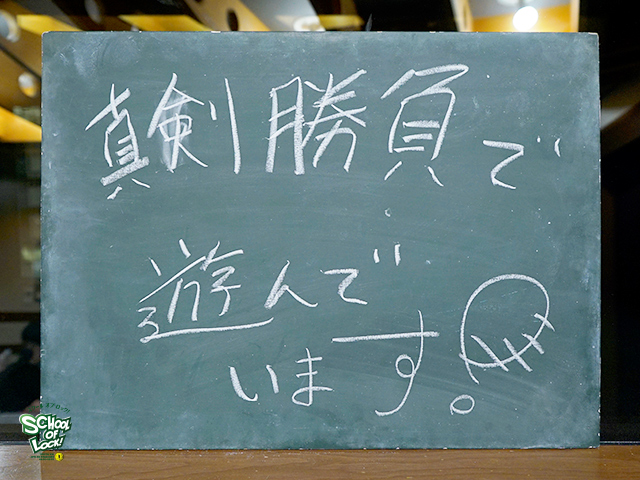 真剣勝負で
遊んで
います。
SCHOOL
OF
LOCK!